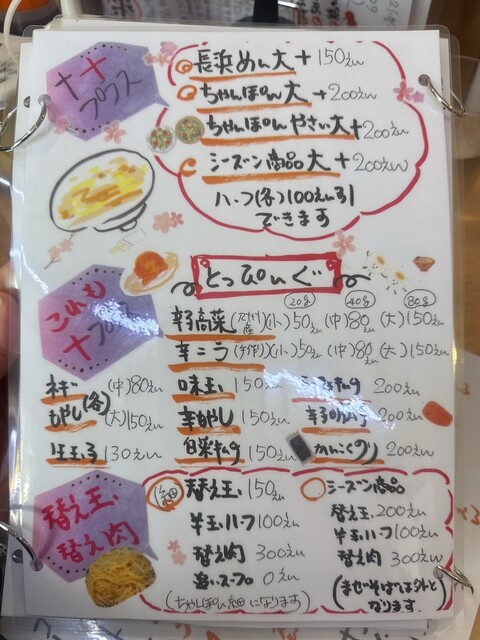 ++
プラス
長浜めん大+150えん
ちゃんぽん大+200えん
ちゃんぽんやさい大+200えん
シーズン商品大+200えん
ハーフ(各)100えん引
できます
とっぴんぐ
これも
+プラス
20g 40g 80g
辛子高菜 (小)50えん (中)80えん (大)150えん
辛ニラ(手作り)(小)50えん (中)80えん (大)150えん
ネギ (中)80えん
もやし(各)(大)150えん
生玉子 130えん
味玉 150えん
辛もやし 150えん
白菜キムチ 150えん
200えん
200えん
かんこくのり 200えん
替え玉、
替え肉
細 替え玉 150えん
半玉ハーフ100えん
替え肉 300えん
追いスープ 0えん
(ちゃんぽん細になります)
シーズン商品
替え玉 200えん
半玉ハーフ100えん
替え肉 300えん
(まぜそばは外と
なります.)